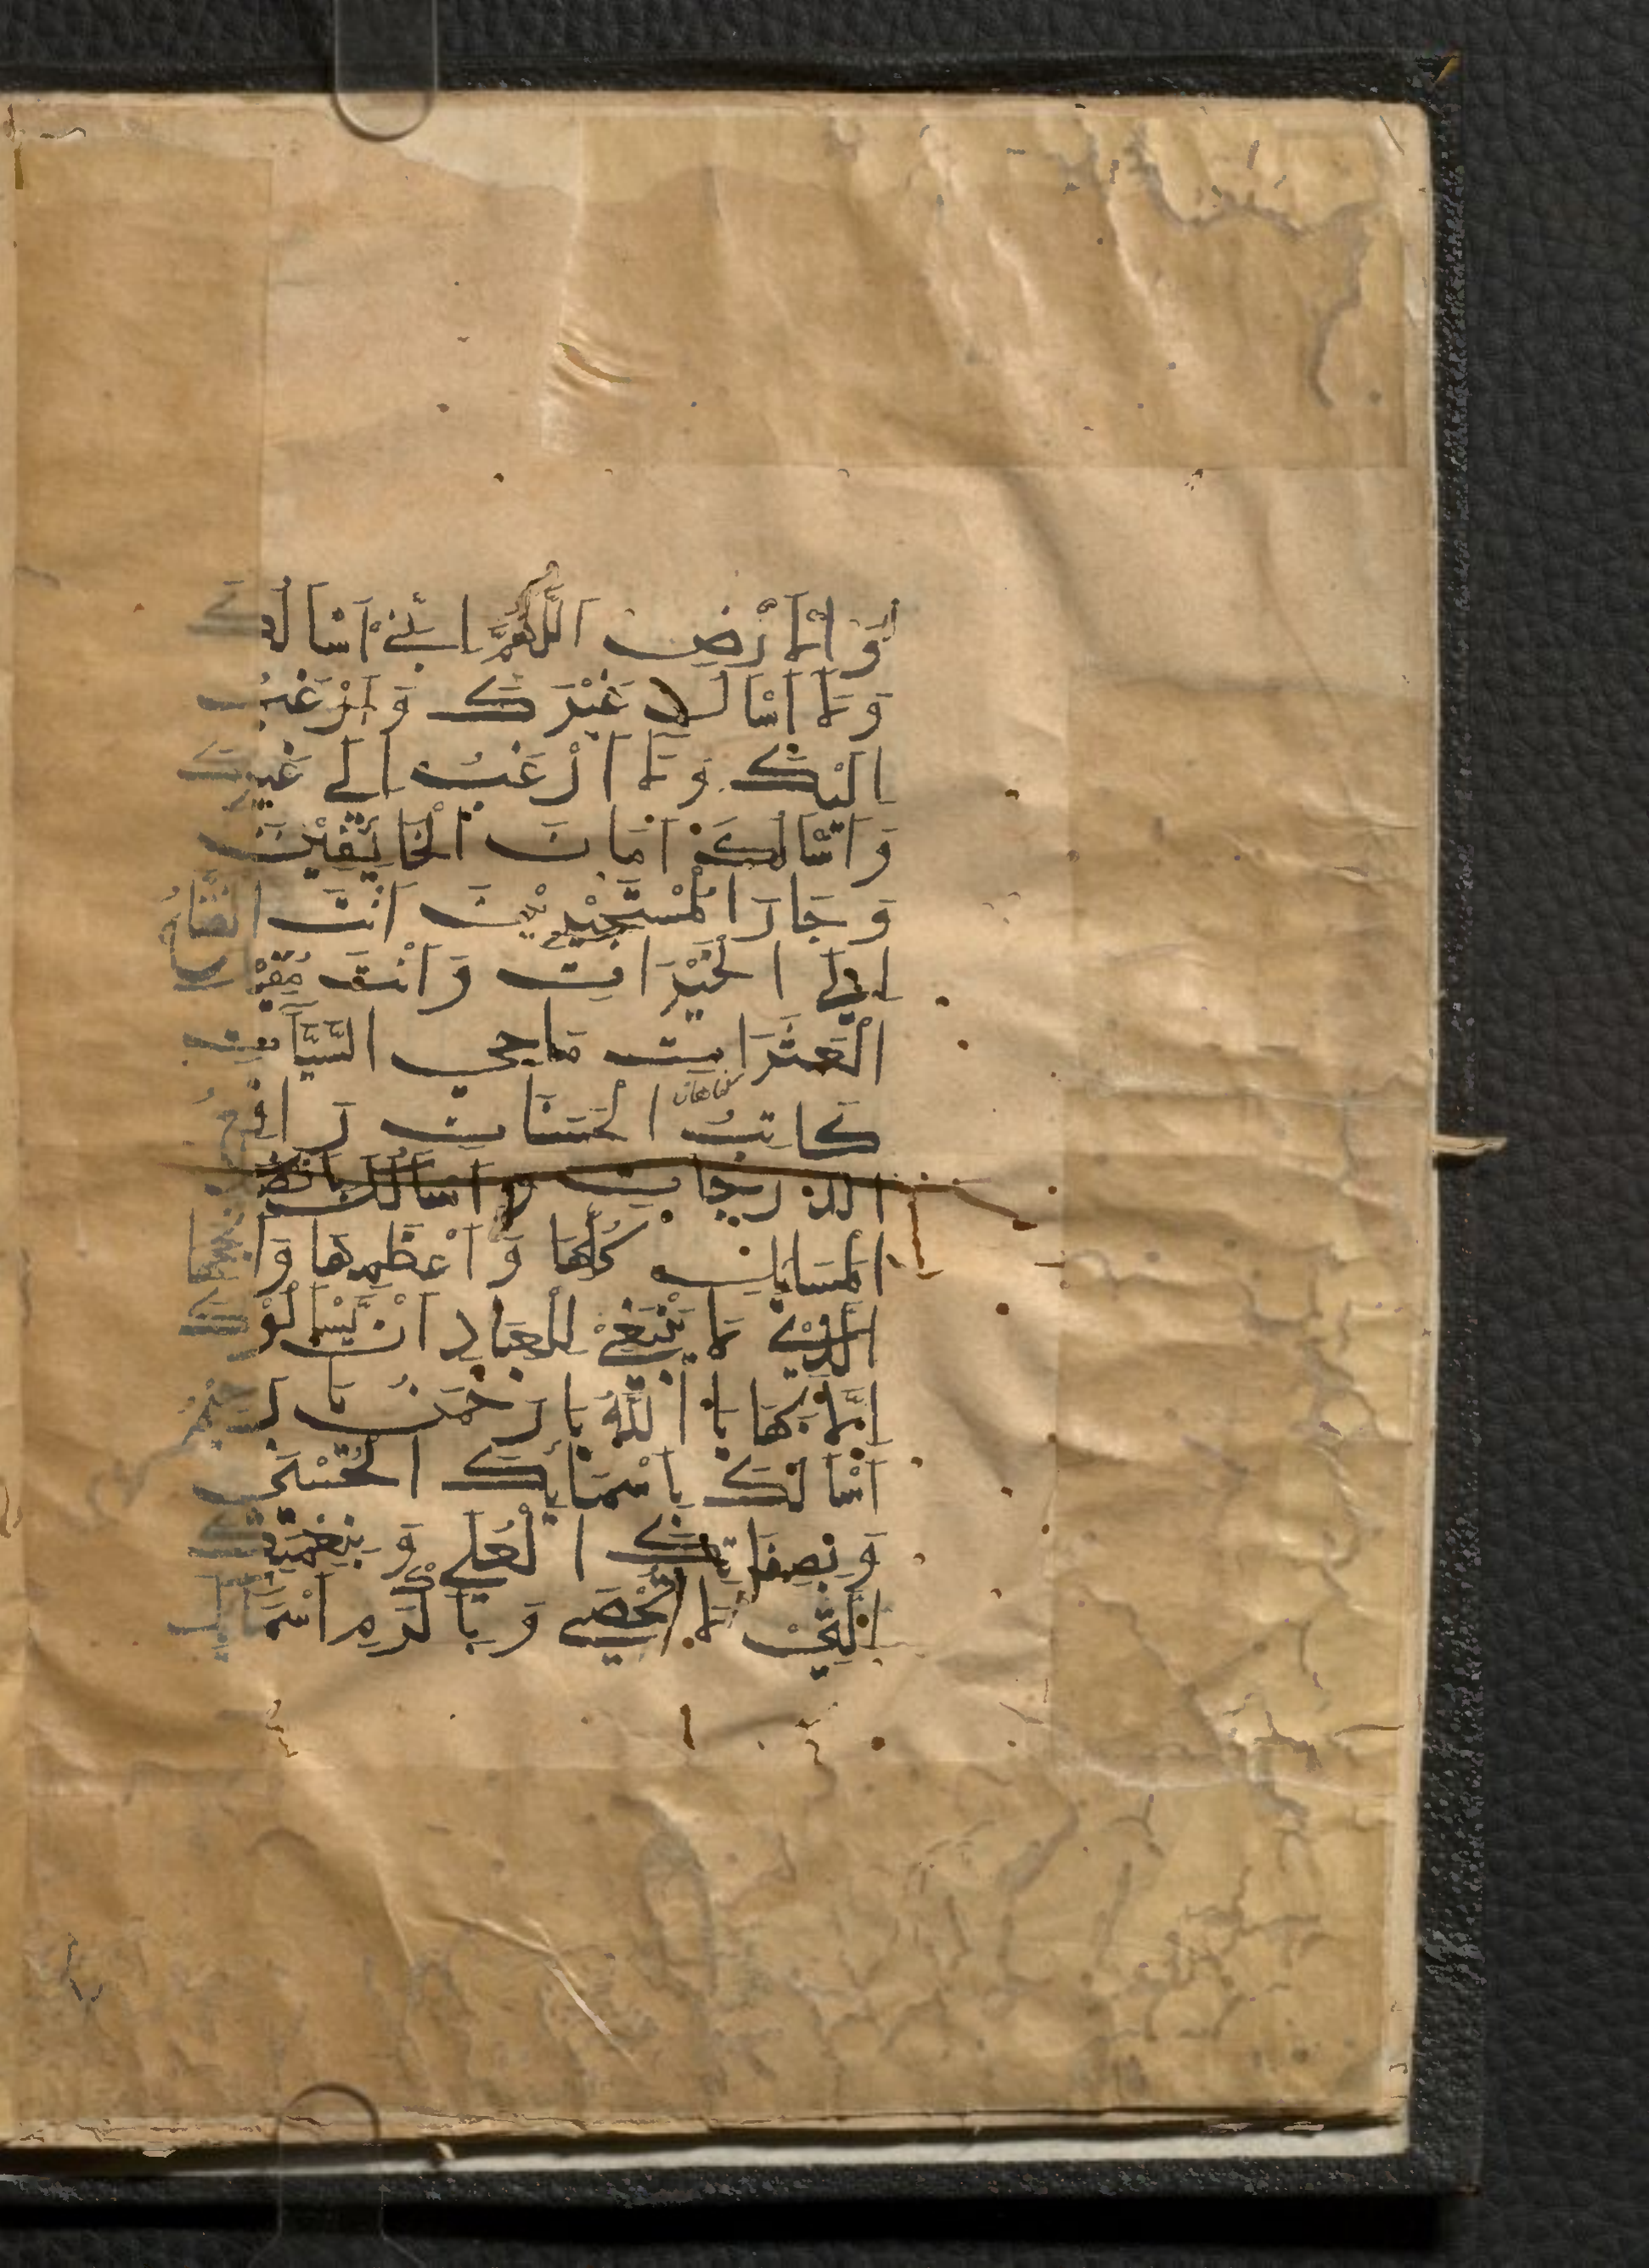 وَ الْاَرْضِ اَللّٰهُمَّ اِنِّيْ اَسْاَلُكَ
وَلَا اَسْاَلُ غَيْرَكَ وَ اَرْغَبُ
اِلَيْكَ وَ لَا اَرْغَبُ اِلَي غَيْرِكَ
وَ اَسْاَلُكَ اَمَانَ الْخَايِفِيْنَ
وَ جَارَ الْمُسْتَجِيْرِيْنَ اَنْتَ الْفَتَّاحُ
الْخَيْرَاتِ وَ اَنْتَ مُقِيْلُ
الْعَثَرَاتِ مَاحِي السَّيِّاٰتِ
كَاتِبُ الْحَسَنَاتِ رَافِعُ
گناهان
الدَّرَجَاتِ وَ اَسْاَلُكَ بِاَفْضَلِ
الْمَسَايِلِ كُلِّهَا وَ اَعْظَمِهَا وَ اَنْجَحِهَا
الَّذِيْ لَا يَنْبَغِيْ لِلْعِبَادِ اَنْ يَّسْاَلُوْكَ
اِلَّا بِهَا يَا اَللّٰهُ يَا رَحْمٰنُ يَا رَحِيْمُ
اَسْاَلُكَ بِاَسْمَايِكَ الْحُسْنَي
وَ بِصِفَاتِكَ الْعُلَي وَ بِنِعْمَتِكَ
الَّتِيْ لَا تُحْصَي وَ بِاَكْرَمِ اَسْمَايِكَ